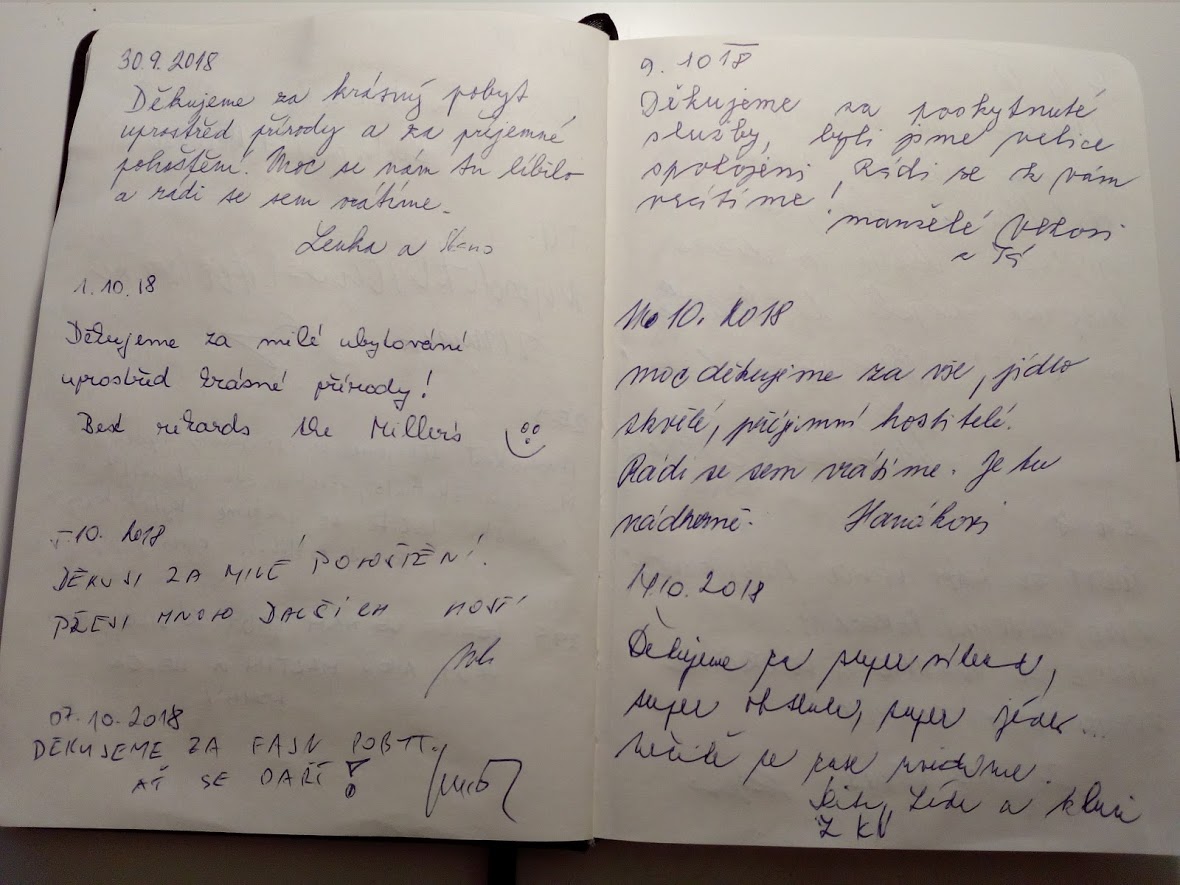 30.9.2018
Děkujeme za krásný pobyt
uprostřed přírody a za příjemné
pohoštění. Moc se nám tu líbilo
a rádi se sem vrátíme.
Lenka a
1.10.18
Děkujeme za milé ubytování
uprostřed krásné přírody!
Best regards the Miller's
10. 2018
DĚKUJI ZA MILÉ POHOŠTĚNÍ.
PŘEJI MNOHO DALŠÍCH HOSTÍ
07.10.2018
DĚKUJEME ZA FAJN POBYT.
AŤ SE DAŘÍ!
9. 10 18
Děkujeme za poskytnuté
služby, byli jsme velice
spokojeni, Rádi se k vám
vrátíme!
manželé
a
10. 2018
moc děkujeme za vše, jídlo
skvělé, příjemní hostitelé.
Rádi se sem vrátíme. Je tu
nádherně. Hanákovi
14.10.2018
Děkujeme za super víkend,
super super
Určitě se zase
a kluci
Z KV